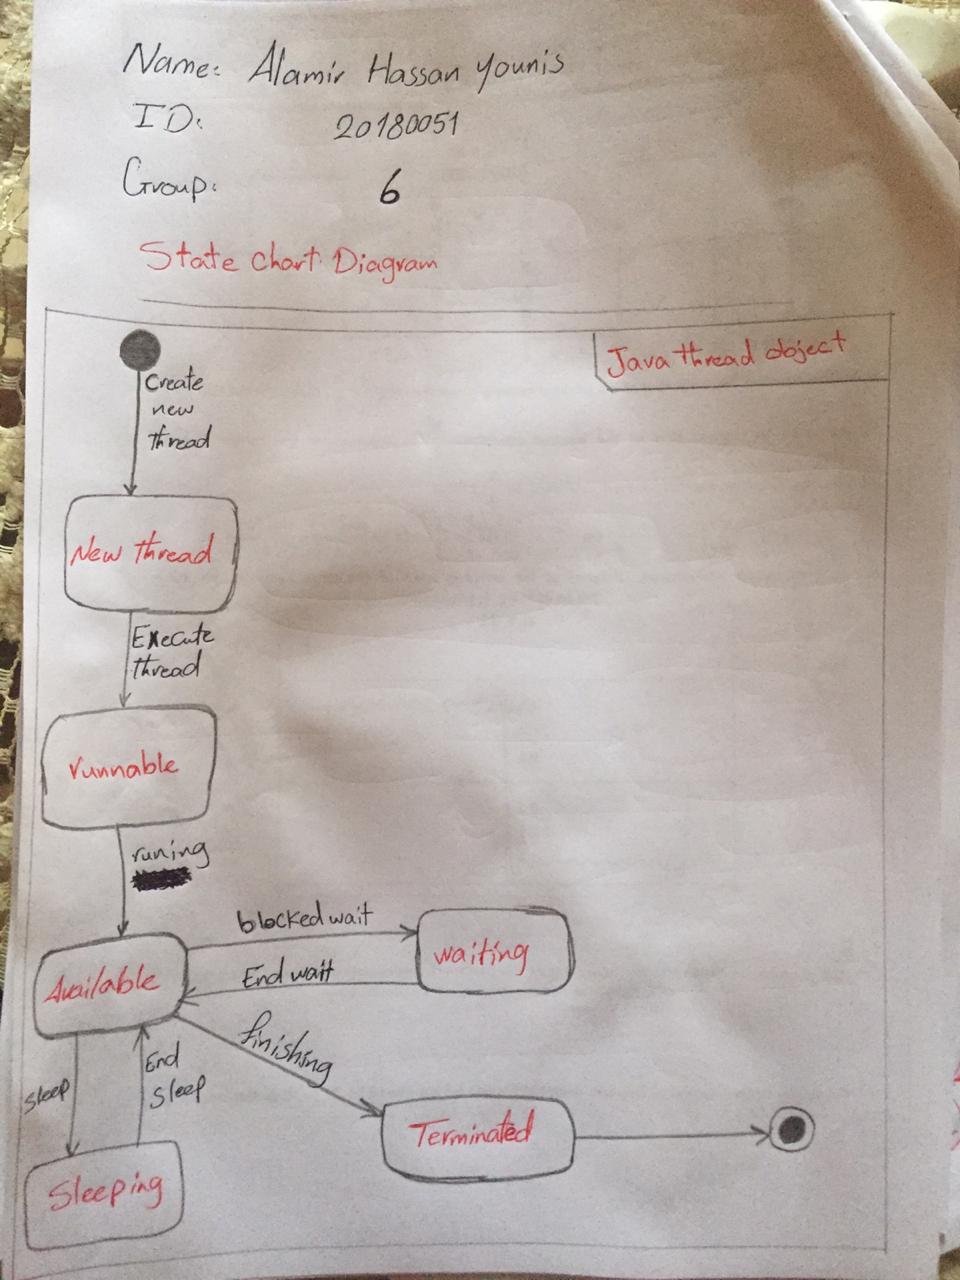 Name: Alamir Hassan younis
ID: 20180051
Group: 6
State chart Diagram
Java thread object
Create
new
thread
New thread
Execute
thread
runnable
runing
blocked wait
waiting
End wait
Available
finishing
sleep
End
sleep
Terminated
Sleeping